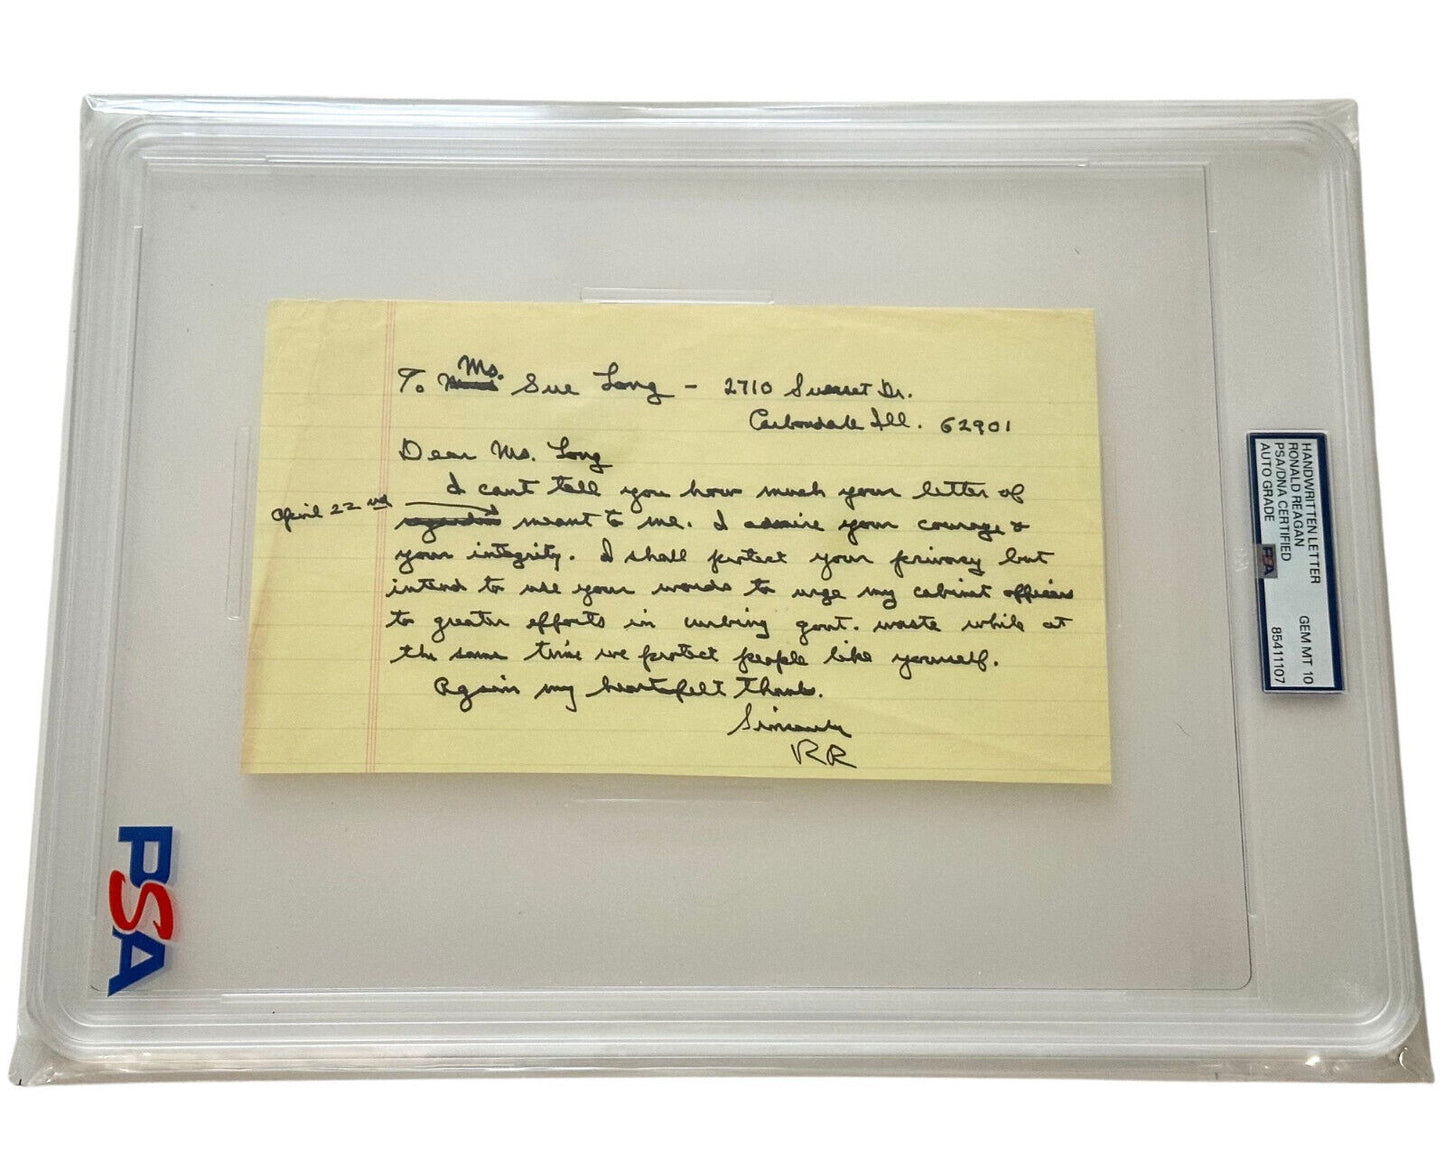 Ms.
To Sue Long - 2710 Sunset Dr.
Carbondale Ill. 62901
Dear Ms. Long
I cant tell you how much your letter of
April 22nd
meant to me. I admire your courage &
your integrity. I shall protect your privacy but
intend to use your words to urge my cabinet officers
to greater efforts in curbing govt. waste while at
the same time we protect people like yourself.
Again my heartfelt thanks.
Sincerely
RR
HANDWRITTEN LETTER
RONALD REAGAN
PSA/DNA CERTIFIED
AUTO GRADE
GEM MT 10
85411107
PSA
PSA